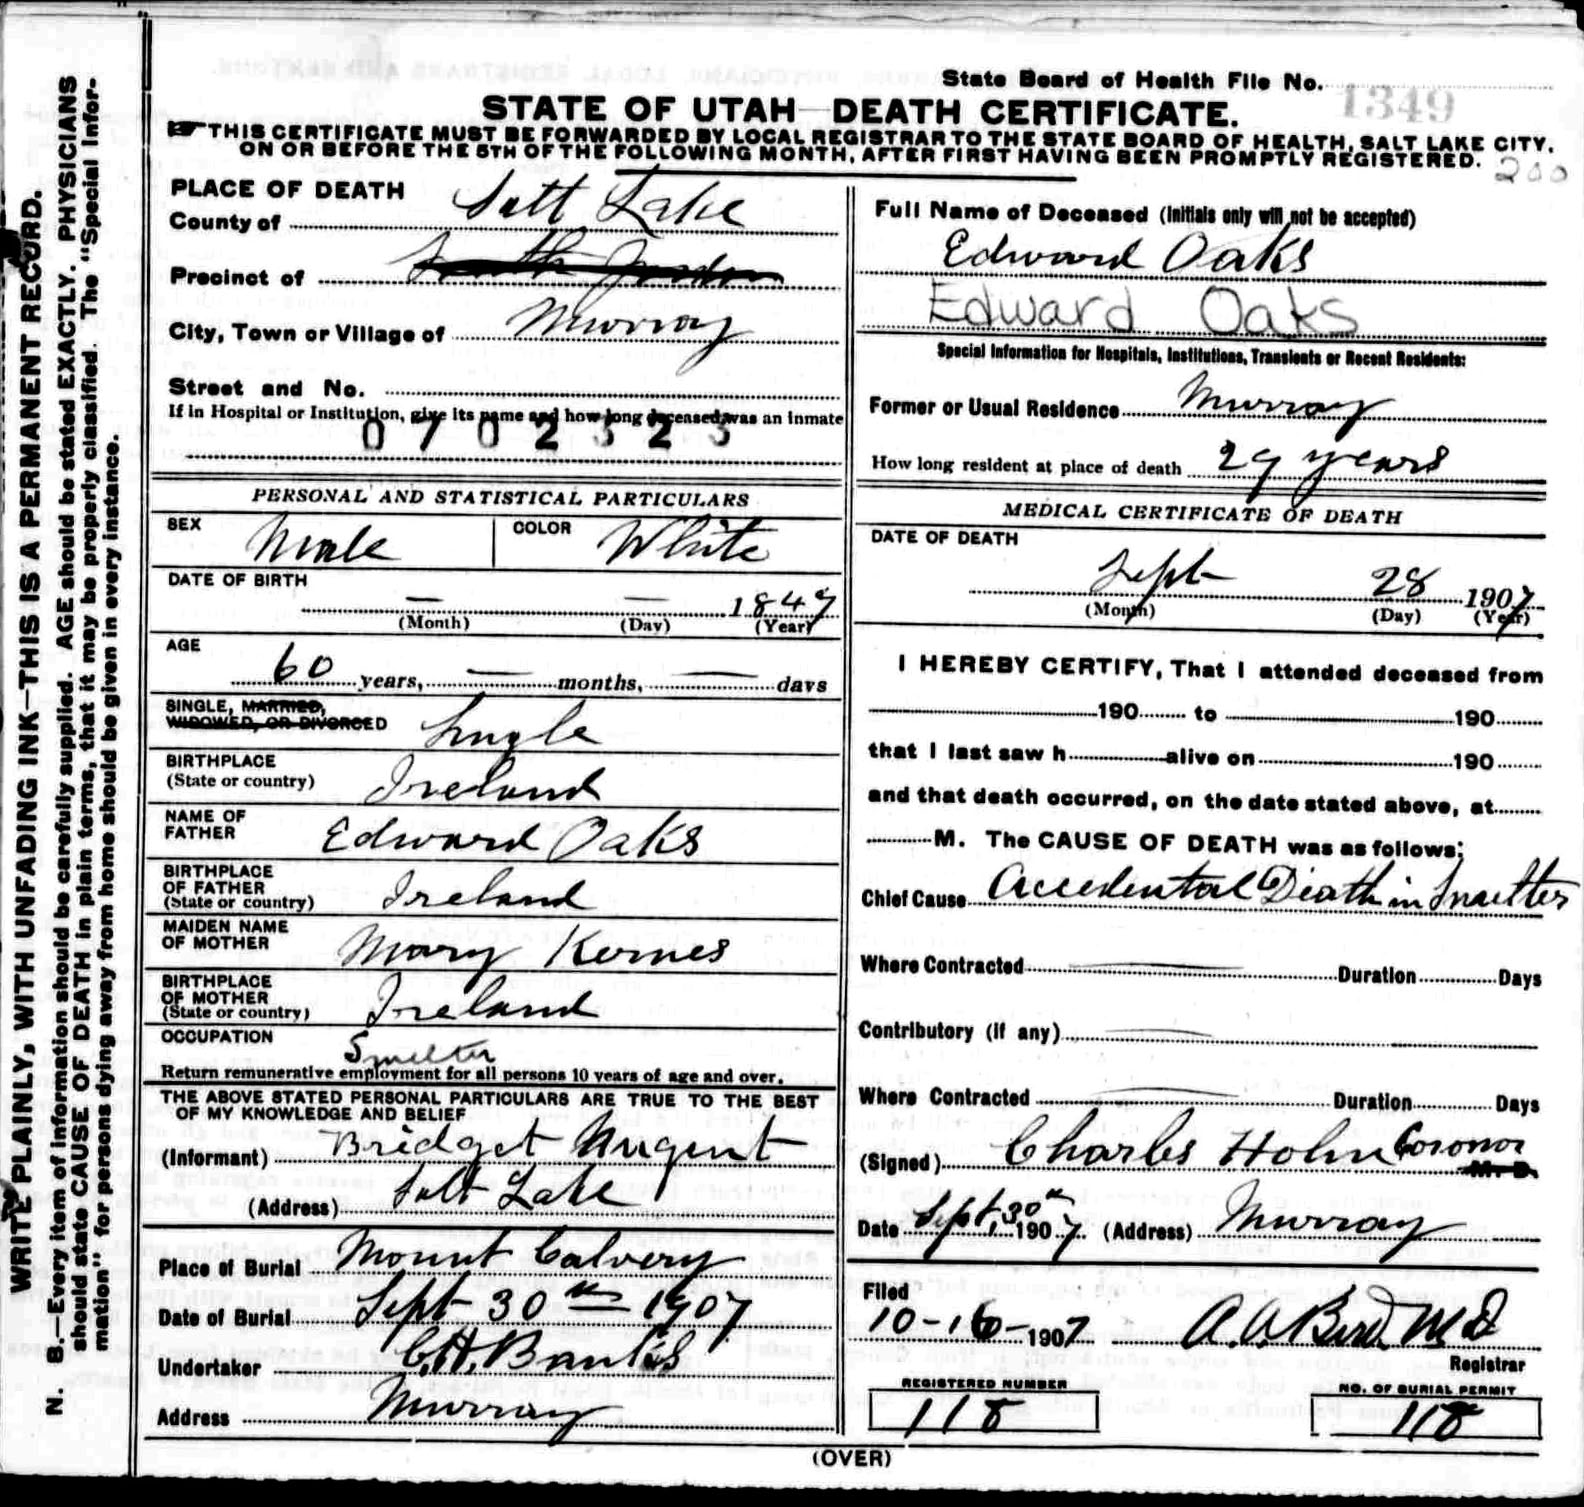 State Board of Health File No. 1349
STATE OF UTAH—DEATH CERTIFICATE.
☞ THIS CERTIFICATE MUST BE FORWARDED BY LOCAL REGISTRAR TO THE STATE BOARD OF HEALTH, SALT LAKE CITY,
ON OR BEFORE THE 5TH OF THE FOLLOWING MONTH, AFTER FIRST HAVING BEEN PROMPTLY REGISTERED.
200
WRITE PLAINLY, WITH UNFADING INK—THIS IS A PERMANENT RECORD.
N. B.—Every item of information should be carefully supplied. AGE should be stated EXACTLY. PHYSICIANS
should state CAUSE OF DEATH in plain terms, that it may be properly classified. The "Special Infor-
mation" for persons dying away from home should be given in every instance.
PLACE OF DEATH
County of Salt Lake
Precinct of South Jordan
City, Town or Village of Murray
Street and No.
If in Hospital or Institution, give its name and how long deceased was an inmate
0702323
PERSONAL AND STATISTICAL PARTICULARS
SEX Male COLOR White
DATE OF BIRTH
— — 1847
(Month) (Day) (Year)
AGE
60 years, — months, — days
SINGLE, MARRIED,
WIDOWED, OR DIVORCED Single
BIRTHPLACE
(State or country) Ireland
NAME OF
FATHER Edward Oaks
BIRTHPLACE
OF FATHER
(State or country) Ireland
MAIDEN NAME
OF MOTHER Mary Kernes
BIRTHPLACE
OF MOTHER
(State or country) Ireland
OCCUPATION
Smelter
Return remunerative employment for all persons 10 years of age and over.
THE ABOVE STATED PERSONAL PARTICULARS ARE TRUE TO THE BEST
OF MY KNOWLEDGE AND BELIEF
(Informant) Bridget Nugent
(Address) Salt Lake
Place of Burial Mount Calvery
Date of Burial Sept 30th 1907
Undertaker C.H. Banks
Address Murray
Full Name of Deceased (Initials only will not be accepted)
Edward Oaks
Edward Oaks
Special Information for Hospitals, Institutions, Transients or Recent Residents:
Former or Usual Residence Murray
How long resident at place of death 29 years
MEDICAL CERTIFICATE OF DEATH
DATE OF DEATH
Sept 28 1907
(Month) (Day) (Year)
I HEREBY CERTIFY, That I attended deceased from
190 to 190
that I last saw h alive on 190
and that death occurred, on the date stated above, at
M. The CAUSE OF DEATH was as follows:
Chief Cause Accedental Death in Smelter
Where Contracted — Duration Days
Contributory (if any) —
Where Contracted — Duration Days
(Signed) Charles Holm Coronor M. D.
Date Sept 30th 1907. (Address) Murray
Filed
10-16-1907 A. A. Bird MD
Registrar
REGISTERED NUMBER
118
NO. OF BURIAL PERMIT
118
(OVER)